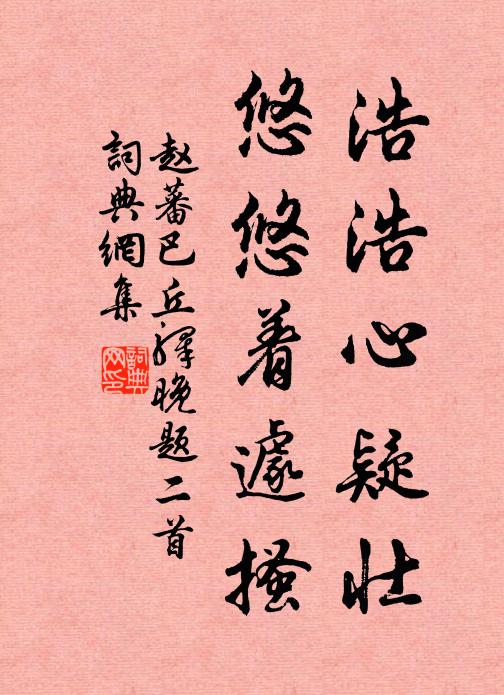 浩浩心疑壮
悠悠着遽搔
赵蕃巴丘驿晚题二首
詞典網集
詞典网印